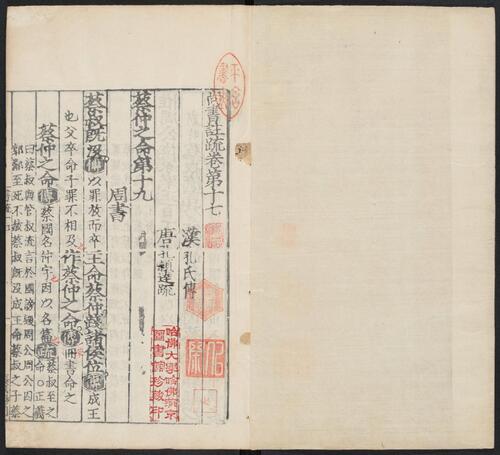 尚書註疏卷第十七
漢孔氏傳
唐孔穎達疏
蔡仲之命第十九
周書
蔡叔既沒傳以罪放而卒王命蔡仲踐諸侯位傳成王
也父卒命子罪不相及作蔡仲之命傳冊書命之
蔡仲之命傳蔡國名仲字因以名篇疏蔡叔至之命○正義
曰蔡叔與管叔流言於國謗毀周公周公囚之
郭鄰至死不赦蔡叔既沒成王命蔡叔之子蔡
哈佛大學哈佛燕京
圖書館珍藏印